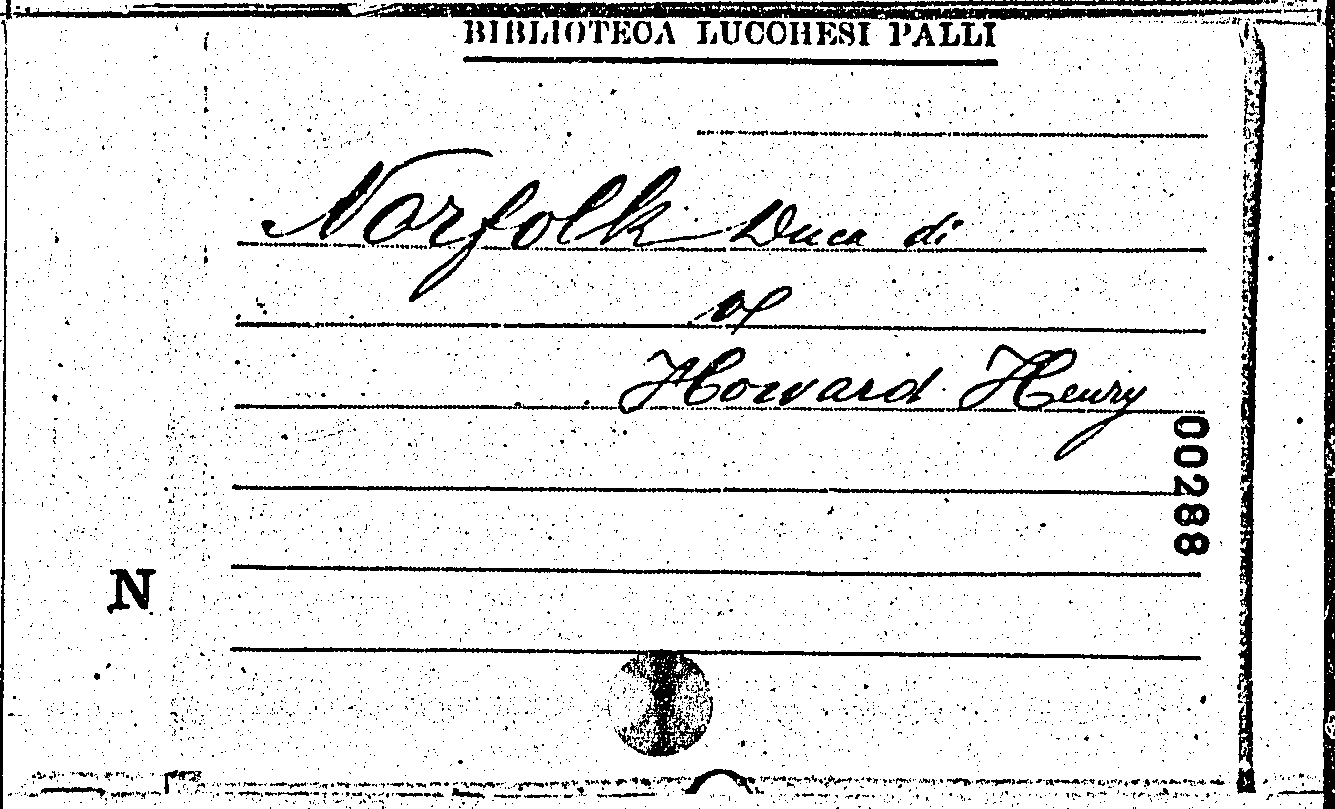 BIBLIOTECA LUCCHESI PALLI
Norfolk Duca di
of
Howard Henry
00288
N